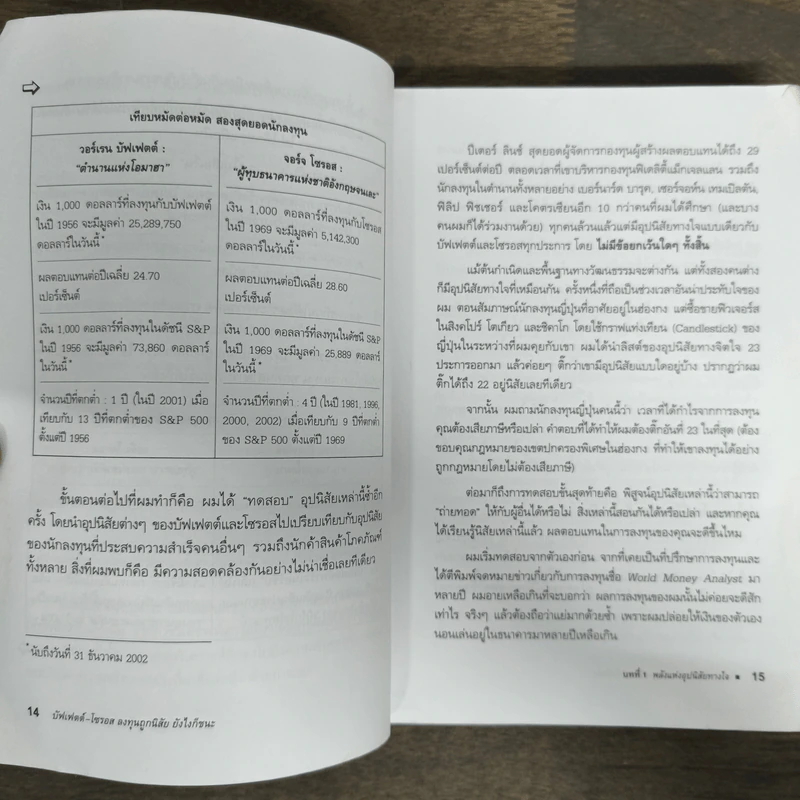 เทียบหมัดต่อหมัด สองสุดยอดนักลงทุน
วอร์เรน บัฟเฟตต์ :
"ตำนานแห่งโอมาฮา"
จอร์จ โซรอส :
"ผู้ทุบธนาคารแห่งชาติอังกฤษจนเละ"
เงิน 1,000 ดอลลาร์ที่ลงทุนกับบัฟเฟตต์
ในปี 1956 จะมีมูลค่า 25,289,750
ดอลลาร์ในวันนี้*
เงิน 1,000 ดอลลาร์ที่ลงทุนกับโซรอส
ในปี 1969 จะมีมูลค่า 5,142,300
ดอลลาร์ในวันนี้*
ผลตอบแทนต่อปีเฉลี่ย 24.70
เปอร์เซ็นต์
ผลตอบแทนต่อปีเฉลี่ย 28.60
เปอร์เซ็นต์
เงิน 1,000 ดอลลาร์ที่ลงทุนในดัชนี S&P
ในปี 1956 จะมีมูลค่า 73,860 ดอลลาร์
ในวันนี้*
เงิน 1,000 ดอลลาร์ที่ลงทุนในดัชนี S&P
ในปี 1969 จะมีมูลค่า 25,889 ดอลลาร์
ในวันนี้*
จำนวนปีที่ตกต่ำ : 1 ปี (ในปี 2001) เมื่อ
เทียบกับ 13 ปีที่ตกต่ำของ S&P 500
ตั้งแต่ปี 1956
จำนวนปีที่ตกต่ำ : 4 ปี (ในปี 1981, 1996,
2000, 2002) เมื่อเทียบกับ 9 ปีที่ตกต่ำ
ของ S&P 500 ตั้งแต่ปี 1969
ขั้นตอนต่อไปที่ผมทำก็คือ ผมได้ "ทดสอบ" อุปนิสัยเหล่านี้ซ้ำอีก
ครั้ง โดยนำอุปนิสัยต่างๆ ของบัฟเฟตต์และโซรอสไปเปรียบเทียบกับอุปนิสัย
ของนักลงทุนที่ประสบความสำเร็จคนอื่นๆ รวมถึงนักค้าสินค้าโภคภัณฑ์
ทั้งหลาย สิ่งที่ผมพบก็คือ มีความสอดคล้องกันอย่างไม่น่าเชื่อเลยทีเดียว
*นับถึงวันที่ 31 ธันวาคม 2002
14 บัฟเฟตต์-โซรอส ลงทุนถูกนิสัย ยังไงก็ชนะ
ปีเตอร์ ลินช์ สุดยอดผู้จัดการกองทุนผู้สร้างผลตอบแทนได้ถึง 29
เปอร์เซ็นต์ต่อปี ตลอดเวลาที่เขาบริหารกองทุนฟิเดลิตี้แม็กเจลแลน รวมถึง
นักลงทุนในตำนานทั้งหลายอย่าง เบอร์นาร์ด บารุค, เซอร์จอห์น เทมเปิลตัน,
ฟิลิป ฟิชเชอร์ และโคตรเซียนอีก 10 กว่าคนที่ผมได้ศึกษา (และบาง
คนผมก็ได้ร่วมงานด้วย) ทุกคนล้วนแล้วแต่มีอุปนิสัยทางใจแบบเดียวกับ
บัฟเฟตต์และโซรอสทุกประการ โดย ไม่มีข้อยกเว้นใดๆ ทั้งสิ้น
แม้ต้นกำเนิดและพื้นฐานทางวัฒนธรรมจะต่างกัน แต่ทั้งสองคนต่าง
ก็มีอุปนิสัยทางใจที่เหมือนกัน ครั้งหนึ่งที่ถือเป็นช่วงเวลาอันน่าประทับใจของ
ผม ตอนสัมภาษณ์นักลงทุนญี่ปุ่นที่อาศัยอยู่ในฮ่องกง แต่ซื้อขายฟิวเจอร์ส
ในสิงคโปร์ โตเกียว และชิคาโก โดยใช้กราฟแท่งเทียน (Candlestick) ของ
ญี่ปุ่นในระหว่างที่ผมคุยกับเขา ผมได้นำลิสต์ของอุปนิสัยทางจิตใจ 23
ประการออกมา แล้วค่อยๆ ติ๊กว่าเขามีอุปนิสัยแบบใดอยู่บ้าง ปรากฏว่าผม
ติ๊กได้ถึง 22 อยู่นิสัยเลยทีเดียว
จากนั้น ผมถามนักลงทุนญี่ปุ่นคนนี้ว่า เวลาที่ได้กำไรจากการลงทุน
คุณต้องเสียภาษีหรือเปล่า คำตอบที่ได้ทำให้ผมต้องติ๊กอันที่ 23 ในที่สุด (ต้อง
ขอบคุณกฎหมายของเขตปกครองพิเศษในฮ่องกง ที่ทำให้เขาลงทุนได้อย่าง
ถูกกฎหมายโดยไม่ต้องเสียภาษี)
ต่อมาก็ถึงการทดสอบขั้นสุดท้ายคือ พิสูจน์อุปนิสัยเหล่านี้ว่าสามารถ
"ถ่ายทอด" ให้กับผู้อื่นได้หรือไม่ สิ่งเหล่านี้สอนกันได้หรือเปล่า และหากคุณ
ได้เรียนรู้นิสัยเหล่านี้แล้ว ผลตอบแทนในการลงทุนของคุณจะดีขึ้นไหม
ผมเริ่มทดสอบจากตัวเองก่อน จากที่เคยเป็นที่ปรึกษาการลงทุนและ
ได้ตีพิมพ์จดหมายข่าวเกี่ยวกับการลงทุนชื่อ World Money Analyst มา
หลายปี ผมอายเหลือเกินที่จะบอกว่า ผลการลงทุนของผมนั้นไม่ค่อยจะดีสัก
เท่าไร จริงๆ แล้วต้องถือว่าแย่มากด้วยซ้ำ เพราะผมปล่อยให้เงินของตัวเอง
นอนเล่นอยู่ในธนาคารมาหลายปีเหลือเกิน
บทที่ 1 พลังแห่งอุปนิสัยทางใจ ■ 15